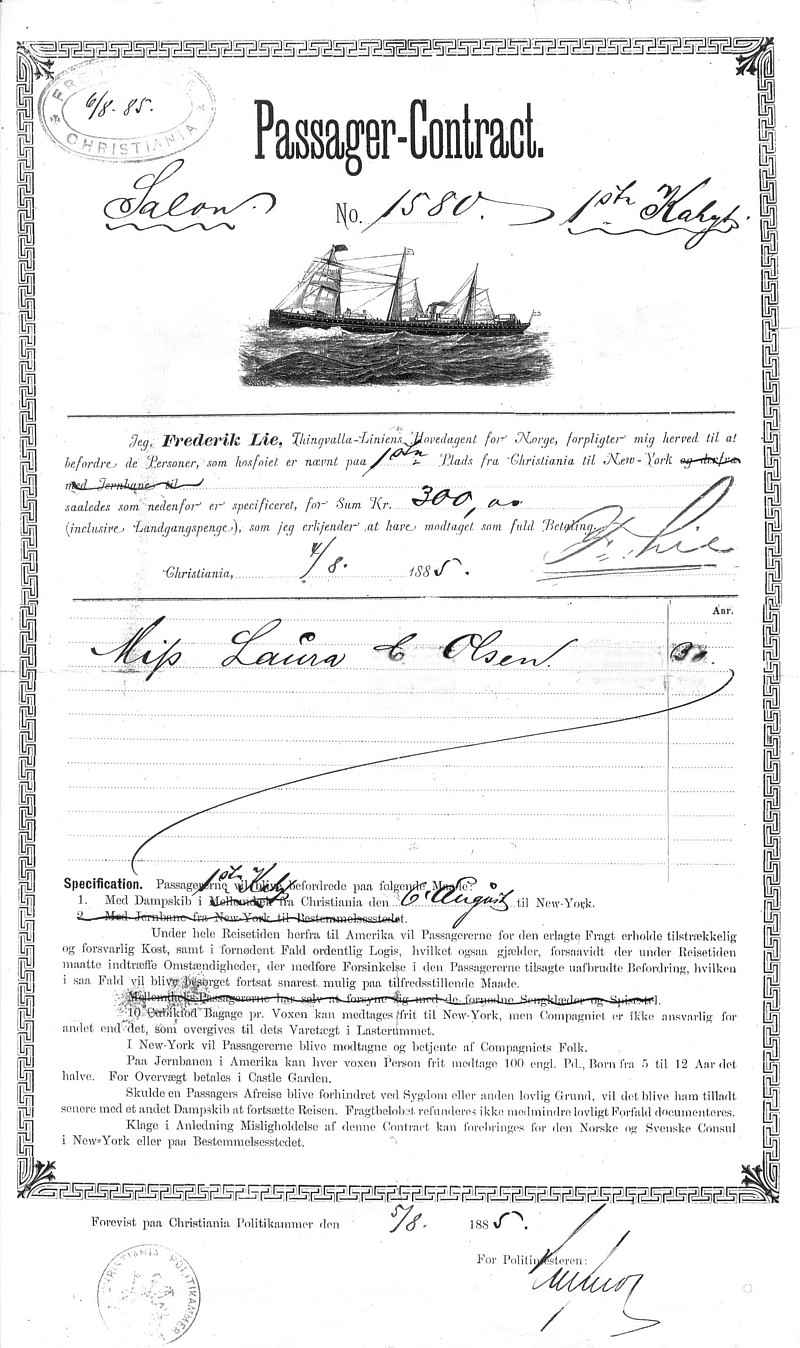 6/8. 85.
CHRISTIANIA
Passager-Contract.
Salon. No. 1580. 1ste Kahyt.
Jeg, Frederik Lie, Thingvalla-Liniens Hovedagent for Norge, forpligter mig herved til at
befordre de Personer, som hosføiet er nævnt paa 1ste Plads fra Christiania til New-York og derfra
med Jernbane til
saaledes som nedenfor er specificeret, for Sum Kr. 300,
(inclusive Landgangspenge), som jeg erkjender at have modtaget som fuld Betaling.
Fr. Lie
Christiania, 4/8. 1885.
Aar.
Miss Laura E Olsen. 30.
Specification. Passagererne vil blive befordrede paa følgende Maade:
1. Med Dampskib i 1ste Kah fra Christiania den 6' August til New-York.
2. Med Jernbane fra New-York til Bestemmelsesstedet.
Under hele Reisetiden herfra til Amerika vil Passagererne for den erlagte Fragt erholde tilstrækkelig
og forsvarlig Kost, samt i fornødent Fald ordentlig Logis, hvilket ogsaa gjælder, forsaavidt der under Reisetiden
maatte indtræffe Omstændigheder, der medføre Forsinkelse i den Passagererne tilsagte uafbrudte Befordring, hvilken
i saa Fald vil blive besørget fortsat snarest mulig paa tilfredsstillende Maade.
Mellemdæks-Passagererne har selv at forsyne sig med de fornødne Sengklæder og Spisestel.
10 Cubikfod Bagage pr. Voxen kan medtages frit til New-York, men Compagniet er ikke ansvarlig for
andet end det, som overgives til dets Varetægt i Lasterummet.
I New-York vil Passagererne blive modtagne og betjente af Compagniets Folk.
Paa Jernbanen i Amerika kan hver voxen Person frit medtage 100 engl. Pd., Børn fra 5 til 12 Aar det
halve. For Overvægt betales i Castle Garden.
Skulde en Passagers Afreise blive forhindret ved Sygdom eller anden lovlig Grund, vil det blive ham tilladt
senere med et andet Dampskib at fortsætte Reisen. Fragtbeløbet refunderes ikke medmindre lovligt Forfald documenteres.
Klage i Anledning Misligholdelse af denne Contract kan forebringes for den Norske og Svenske Consul
i New-York eller paa Bestemmelsesstedet.
Forevist paa Christiania Politikammer den 5/8. 1885.
For Politimesteren:
CHRISTIANIA POLITIKAMMER